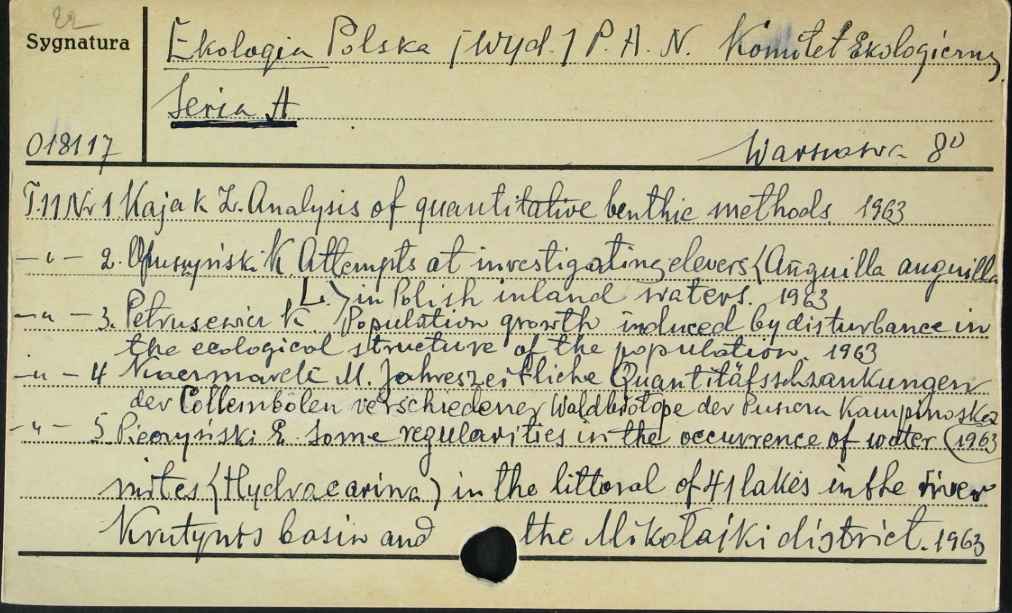 22
Sygnatura
Ekologia Polska [Wyd.] P. A. N. Komitet Ekologiczny
Seria A
018117
Warszawa 8°
T.11 Nr 1 Kajak Z. Analysis of quantitative benthic methods 1963
-"- 2. Opuszyński K. Attempts at investigating elevers (Anguilla anguilla
L.) in Polish inland waters. 1963
-"- 3. Petrusewicz K. Population growth induced by disturbance in
the ecological structure of the population. 1963
-"- 4 M. Jahreszeitliche Quantitätsschwankungen
der Collembolen verschiedener Waldbiotope der Puszcza Kampinoska
1963
-"- 5. Pieczyński E. Some regularities in the occurrence of water
mites (Hydracarina) in the littoral of 41 lakes in the river
Krutynia basin and the Mikołajki district. 1963